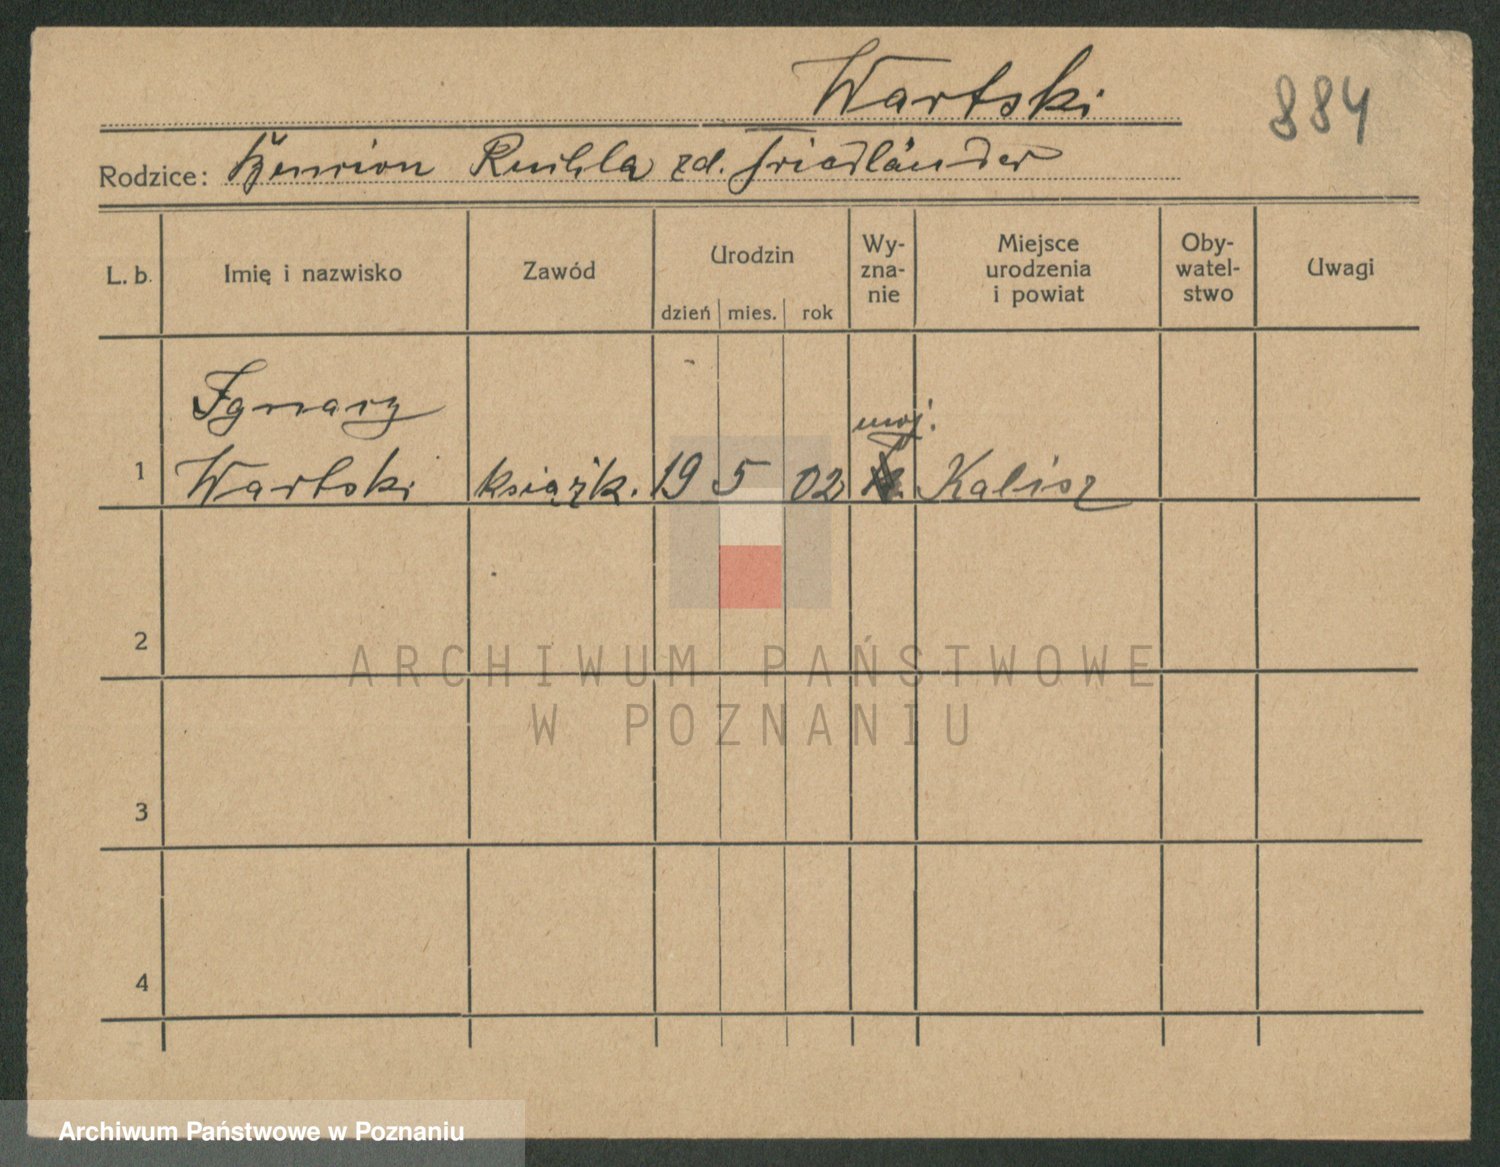 Wartski
884
Rodzice: Ruchla zd. Friedländer
L. b. Imię i nazwisko Zawód Urodzin dzień mies. rok Wy-zna-nie Miejsce urodzenia i powiat Oby-watel-stwo Uwagi
Ignacy
mojż.
1 Wartski książk. 19 5 02 Kalisz
2
ARCHIWUM PAŃSTWOWE
W POZNANIU
3
4
Archiwum Państwowe w Poznaniu